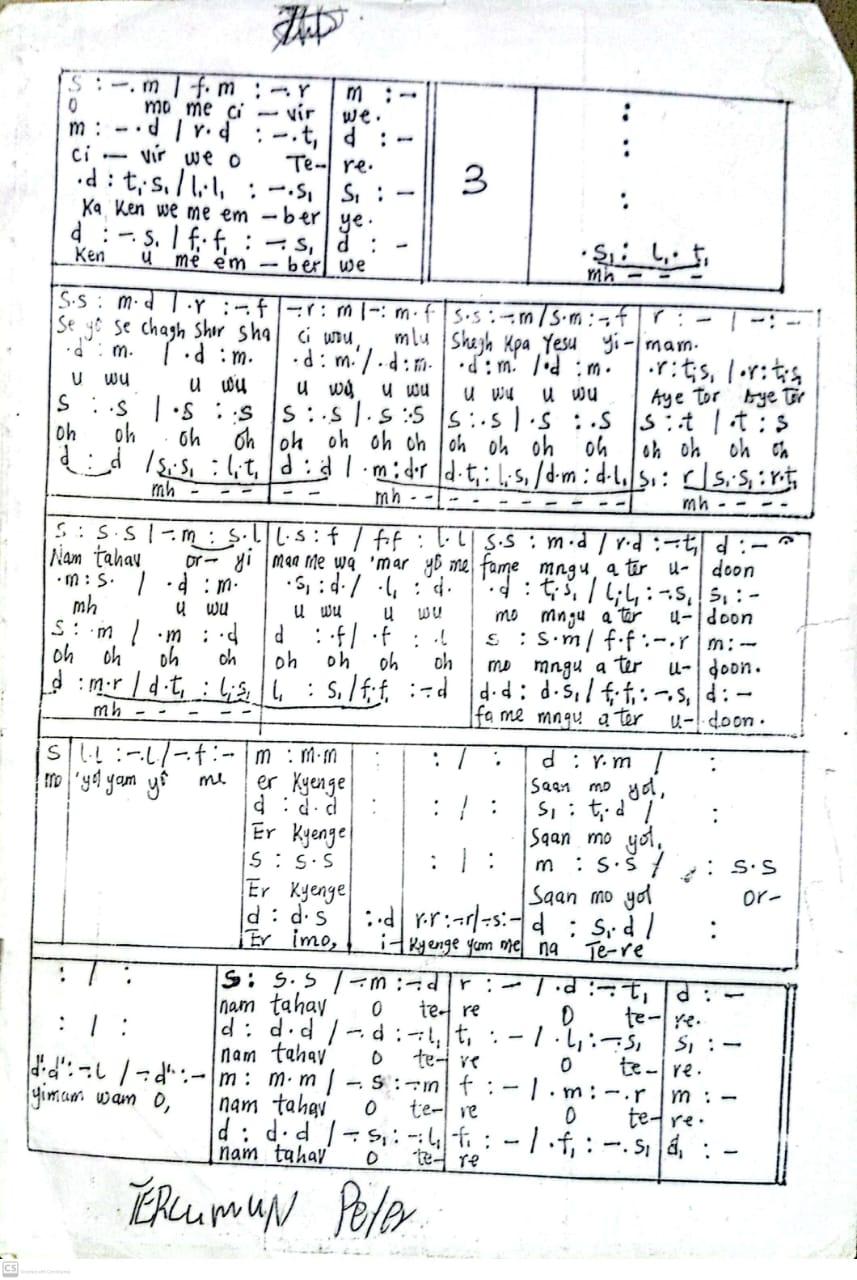 S : -. m / f. m : -. r m : -
O mo me ci - vir we.
m : - . d / r. d : -. t, d : -
ci - vir we o Te- re.
.d : t,. s, / l,. l, : -. s, s, : -
Ka Ken we me em - ber ye.
d : -. s, / f,. f, : -. s, d : -
Ken u me em - ber we
3
:
:
:
. s, : l,. t,
mh - - -
S.s : m. d / . r : -. f -. r : m / - : m. f s. s : -. m / s. m : -. f r : - / - : -
Se yô se chagh shir sha ci wou, mlu Shegh Kpa Yesu yi- mam.
.d : m. / . d : m. .d : m. / . d : m. .d : m. / . d : m. .r : t,. s, / . r : t,. s,
u wu u wu u wu u wu u wu u wu Aye Tor Aye Tor
S : . s / . s : . s S : . s / . s : S S : . s / . s : . s S : . t / . t : s
oh oh oh oh oh oh oh oh oh oh oh oh oh oh oh oh
d : d / s,. s, : l,. t, d : d / . m : d. r d. t, : l,. s, / d. m : d. l, s, : r / s,. s, : r. t,
mh - - - - - - mh - - - - - - - - - mh - - -
S : S. S / -. m : s. l l. s : f / f. f : l. l s. s : m. d / r. d : -. t, d : -
Nam tahav or- yi maa me wa 'mar yô me fame mngu a ter u- doon
.m : s. / . d : m. . s, : d. / . l, : d. . d : t,. s, / l,. l, : -. s, s, : -
mh u wu u wu u wu mo mngu a ter u- doon
S : . m / . m : . d d : . f / . f : . l s : s. m / f. f : -. r m : -
oh oh oh oh oh oh oh oh mo mngu a ter u- doon.
d : m. r / d. t, : l,. s, l, : s, / f,. f, : -. d d. d : d. s, / f,. f, : -. s, d : -
mh - - - - - fa me mngu a ter u- doon.
S l. l : -. l / -. f : - m : m. m : : / : d : r. m / :
mo 'yol yam yô me er Kyenge Saan mo yol,
d : d. d : : / : s, : t,. d / :
Er Kyenge Saan mo yol,
S : S. S : / : m : s. s / : s. s
Er Kyenge Saan mo yol or-
d : d. s : . d r. r : -. r / -. s : - d : s,. d / :
Er imo, i- Kyenge yam me na Te-re
: / : S : S. S / -. m : -. d r : - / . d : -. t, d : -
nam tahav o te- re o te- re.
: / : d : d. d / -. d : -. l, t, : - / . l, : -. s, s, : -
nam tahav o te- re o te- re.
d'. d' : -. l / -. d' : - m : m. m / -. s : -. m f : - / . m : -. r m : -
yimam wam o, nam tahav o te- re o te- re.
d : d. d / -. s, : -. l, f, : - / . f, : -. s, d, : -
nam tahav o te- re
TERCUMUN Peter
CS